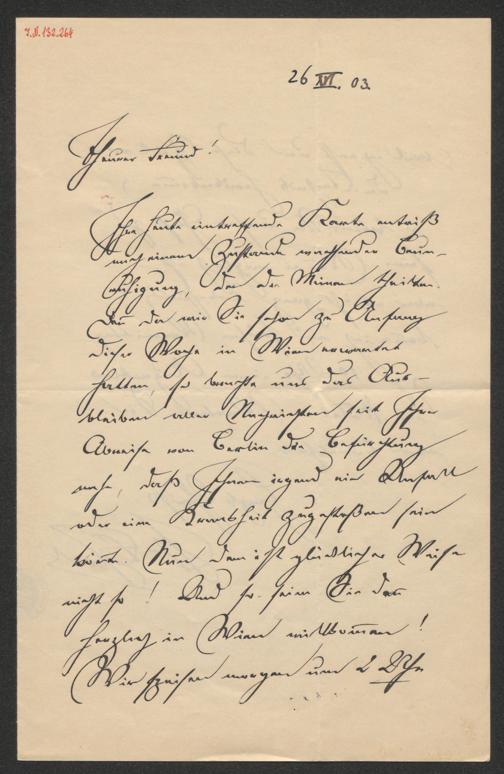 I.N. 132.264
26 XII. 03.
Theurer Freund!
Ihre heute eintreffende Karte entriß
mich einem Zustande wachsender Beun-
ruhigung, den die Meinen theilten.
Denn da wir Sie schon zu Anfang
dieser Woche in Wien erwartet
hatten, so brachte uns das Aus-
bleiben aller Nachrichten seit Ihrer
Abreise von Berlin die Befürchtung
nahe, daß Ihnen irgend ein Unfall
oder eine Krankheit zugestoßen sein
könnte. Nun dem ist glücklicher Weise
nicht so! Und so seien Sie denn
herzlich in Wien willkommen!
Wir speisen morgen um 2 Uhr